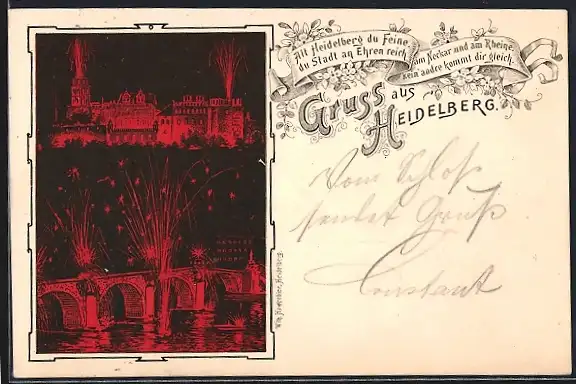 Alt Heidelberg du Feine,
du Stadt an Ehren reich,
am Neckar und am Rheine
kein andre kommt dir gleich.
Gruss aus
HEIDELBERG.
Vom Schloß
sendet Gruß
Constant
Heidelberg.